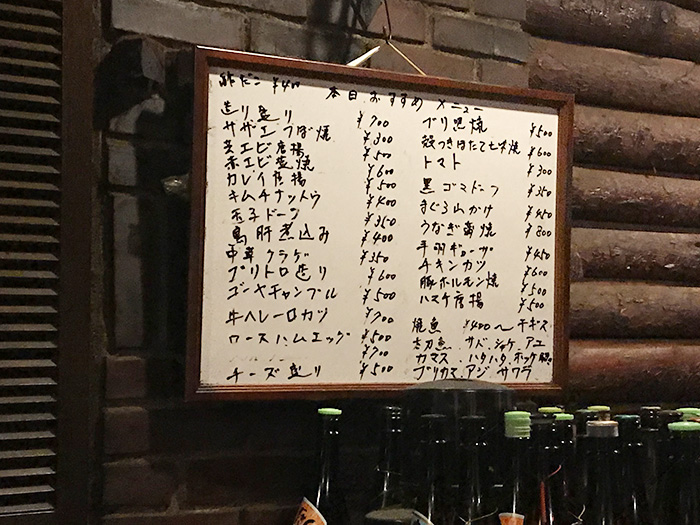 酢だこ ¥400
本日おすすめメニュー
造り盛り ¥700
サザエつぼ焼 ¥300
芝エビ唐揚 ¥500
赤エビ塩焼 ¥600
カレイ唐揚 ¥500
キムチナットウ ¥400
玉子ドーフ ¥350
鳥肝煮込み ¥400
中華クラゲ ¥350
ブリトロ造り ¥600
ゴーヤチャンプル ¥500
牛ヘレ一口カツ ¥700
ロースハムエッグ ¥500
¥700
チーズ盛り ¥500
ブリ照焼 ¥500
殻つきほたて七味焼 ¥600
トマト ¥300
黒ゴマドーフ ¥350
まぐろ山かけ ¥450
うなぎ蒲焼 ¥800
手羽ギョーザ ¥450
チキンカツ ¥600
豚ホルモン焼 ¥500
ハマチ唐揚 ¥500
焼魚 ¥400〜 干キス
太刀魚 サバ シャケ アユ
カマス ハタハタ ホッケ
ブリカマ アジ サワラ